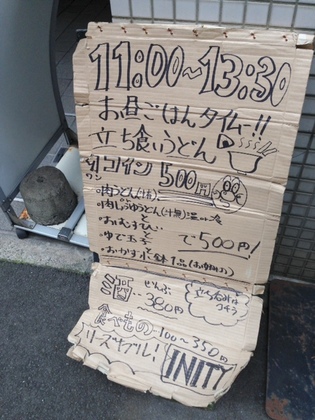 11:00~13:30
お昼ごはんタイム!!
立ち食いうどん
ワンコイン 500円
・肉うどん(有)
・肉ぶっかけうどん(汁無)温or冷
と
・おむすび
と
・ゆで玉子
と
・おかず小鉢1品(お物菜)
で500円!
酒 ぜんぶ 380円
立ち飲みは
食べもの 100~350円
リーズナブル!
INITY